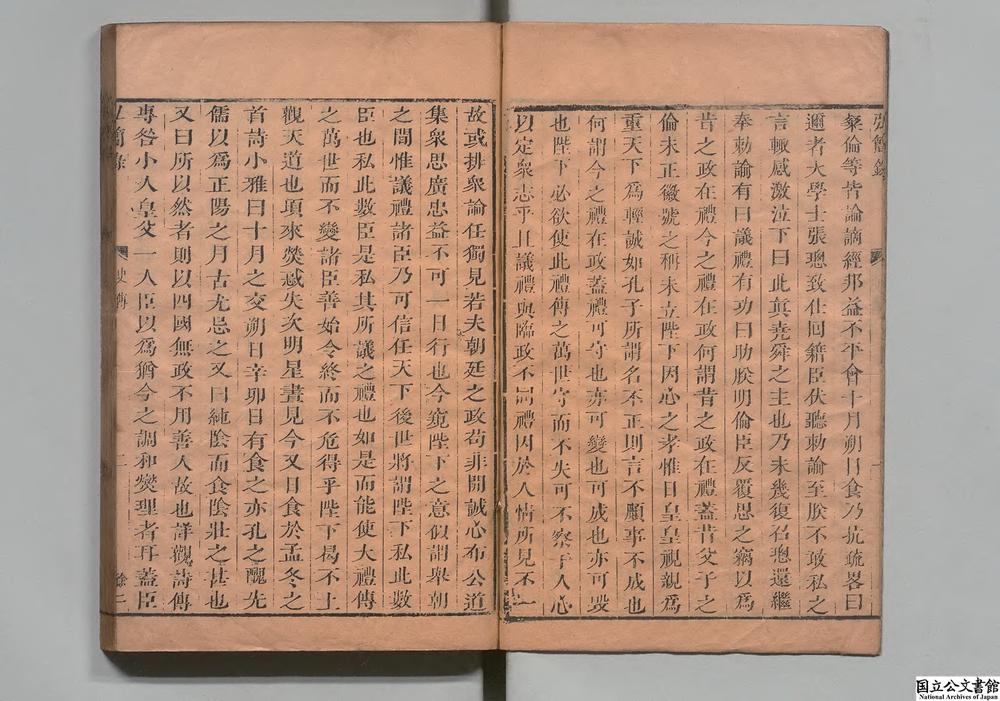 弘簡錄
一
粲倫等皆論謫經邦益不平會十月朔日食乃抗疏畧曰
邇者大學士張璁致仕囘籍臣伏聽勅諭至朕不敢私之
言輙感激泣下曰此眞堯舜之主也乃未幾復召璁還繼
奉勅諭有曰議禮有功曰助朕明倫臣反覆思之竊以爲
昔之政在禮今之禮在政何謂昔之政在禮蓋昔父子之
倫未正徽號之稱未立陛下因心之孝惟日皇皇視親爲
重天下爲輕誠如孔子所謂名不正則言不順事不成也
何謂今之禮在政蓋禮可守也亦可變也可成也亦可毁
也陛下必欲使此禮傳之萬世守而不失可不察于人心
以定衆志乎且議禮與臨政不同禮因於人情所見不一
故或排衆論任獨見若夫朝廷之政苟非開誠心布公道
集衆思廣忠益不可一日行也今窺陛下之意似謂舉朝
之間惟議禮諸臣乃可信任天下後世將謂陛下私此數
臣也私此數臣是私其所議之禮也如是而能使大禮傳
之萬世而不變諸臣善始令終而不危得乎陛下曷不上
觀天道也項來熒惑失次明星晝見今又日食於孟冬之
首詩小雅曰十月之交朔日辛卯日有食之亦孔之醜先
儒以爲正陽之月古尤忌之又曰純陰而食陰壯之甚也
又曰所以然者則以四國無政不用善人故也詳觀詩傳
專咎小人皇父一人臣以爲猶今之調和燮理者耳蓋臣
弘簡錄
史傳
二
餘二
国立公文書館
National Archives of Japan